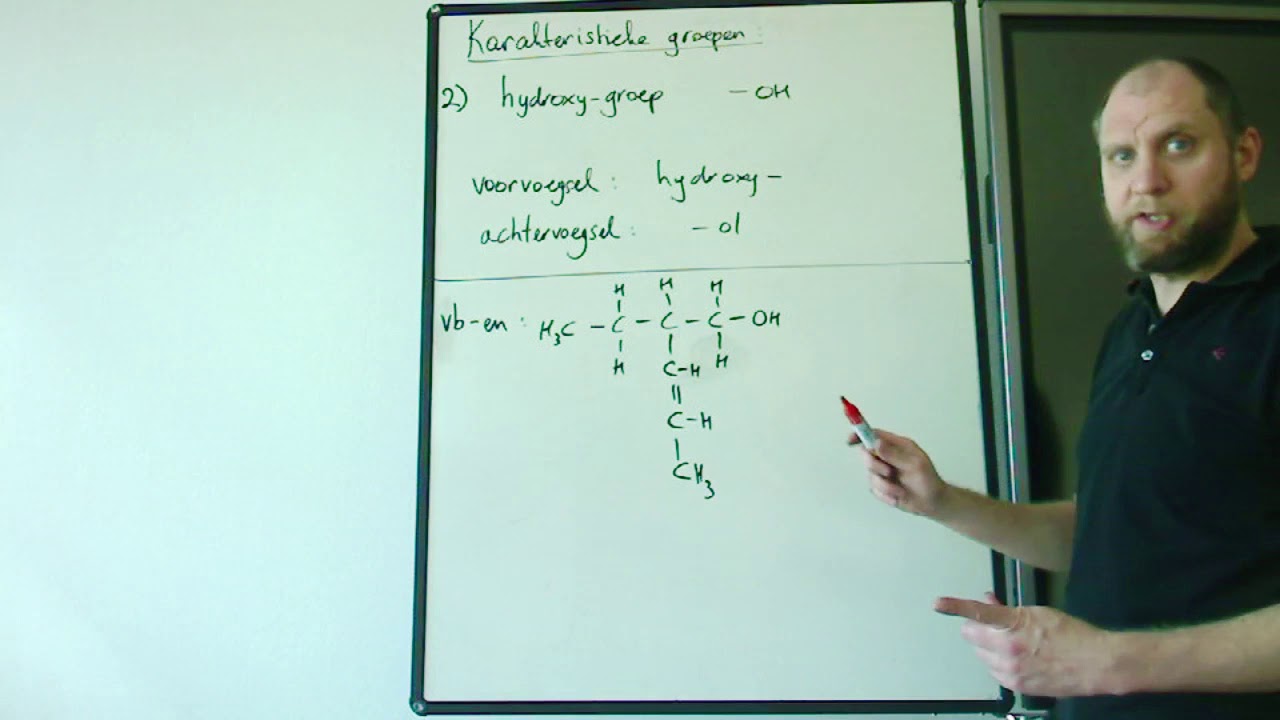 Karakteristieke groepen:
2) hydroxy-groep -OH
voorvoegsel: hydroxy-
achtervoegsel: -ol
H H H
vb-en: H₃C - C - C - C - OH
H C-H H
C-H
CH₃